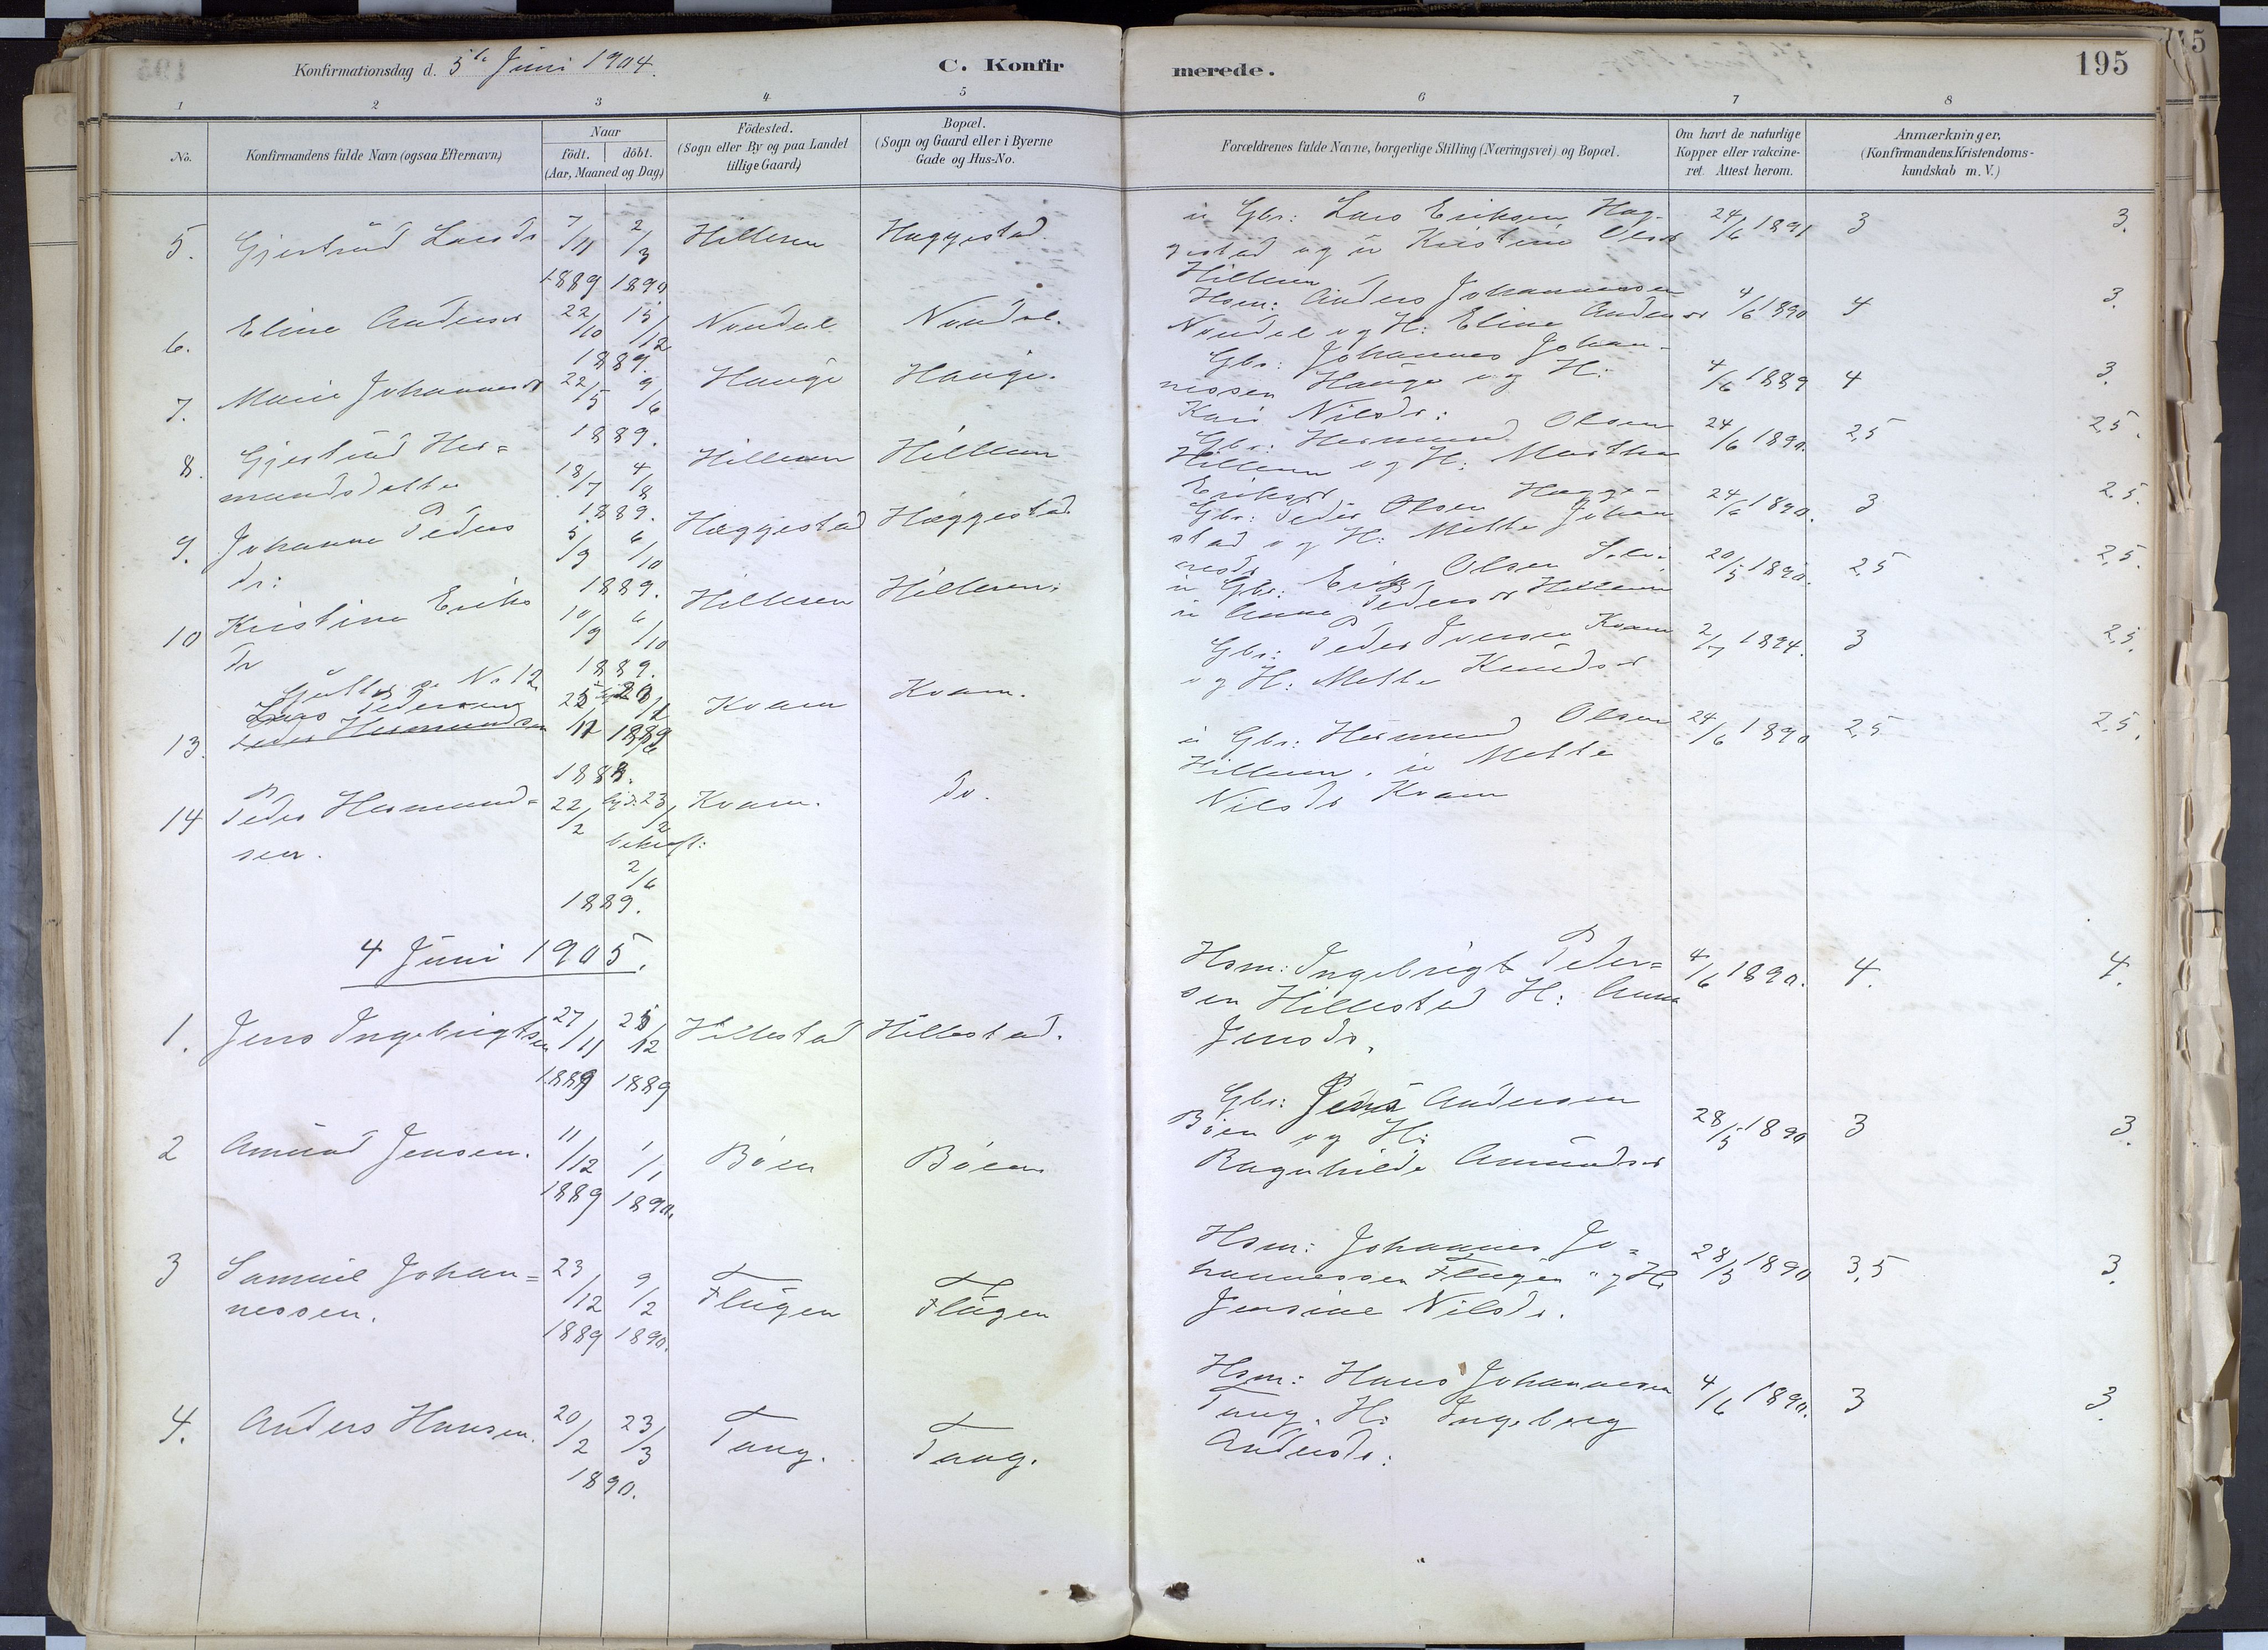 Konfirmationsdag d. 5te Juni 1904.
C. Konfirmerede.
195
1 2 3 4 5 6 7 8
No.
Konfirmandens fulde Navn (ogsaa Efternavn)
Naar
födt. döbt.
(Aar, Maaned og Dag)
Födested.
(Sogn eller By og paa Landet
tillige Gaard)
Bopæl.
(Sogn og Gaard eller i Byerne
Gade og Hus-No.
Forældrenes fulde Navne, borgerlige Stilling (Næringsvei) og Bopæl.
Om havt de naturlige
Kopper eller vakcine-
ret. Attest herom.
Anmærkninger.
(Konfirmandens Kristendoms-
kundskab m. V.)
5. Gjertrud Larsdr 7/11 1889 2/3 1890 Hilleren Haggestad
u Gbr: Lars Eriksen Hag-
gestad og u Kristine Olsdr
Hilleren
24/6 1891 3 3.
6. Eline Andersdr 22/10 15/12 1889. Nondal Nondal.
Hsm: Anders Johannessen
Nondal og H: Eline Andersdr
4/6 1890 4 3.
7. Marie Johannesdr 22/5 9/6 1889. Hauge Hauge.
Gbr: Johannes Johan-
nessen Hauge og H:
Kari Nilsdr:
4/6 1889 4 3.
8. Gjertrud Her=
mundsdatter 18/7 4/8 1889. Hilleren Hilleren
Gbr: Hermund Olsen
Hilleren og H: Martha
Eriksdr
24/6 1890. 2,5 2,5.
9. Johanne Peders
dr: 5/9 6/10 1889. Haggestad Haggestad
Gbr: Peder Olsen Hagge-
stad og H: Mette Johan
nesdr
24/6 1890. 3 2,5.
10 Kristine Eriks
dr 10/9 6/10 1889. Hilleren Hilleren.
u Gbr: Erik Olsen
u Anna Pedersdr Hilleren
20/5 1890. 2,5 2,5.
No 12
13. Lars Pedersen
Peder Hermundsen 1889 Kvam Kvam.
Gbr: Peder Iversen Kvam
og H: Mette Knudsdr
2/7 1894. 3 2,5.
14 Peder Hermund=
sen. 22/2 hjd. 23/2
bekræft:
2/6
1889. Kvam. do.
u Gbr: Hermund Olsen
Hilleren. u Mette
Nilsdr Kvam
24/6 1890 2,5 2,5.
4 Juni 1905.
1. Jens Ingebrigtsen 27/11 1889 25/12 1889 Hillestad Hillestad.
Hsm: Ingebrigt Peder=
sen Hillestad H: Anna
Jensdr.
4/6 1890. 4. 4.
2 Amund Jensen. 11/12 1889 1/1 1890. Bøen Bøen
Gbr: Jens Andersen
Bøen og H:
Ragnhilde Amundsdr
28/5 1890 3 3.
3 Samuel Johan=
nessen. 23/12 1889 9/2 1890. Flugen Flugen
Hsm: Johannes Jo=
hannessen Flugen og H:
Jensine Nilsdr.
28/5 1890 3,5 3.
4. Anders Hansen. 20/2 23/3 1890. Tang. Tang.
Hsm: Hans Johannesen
Tang. H: Ingeborg
Andersdr:
4/6 1890. 3 3.